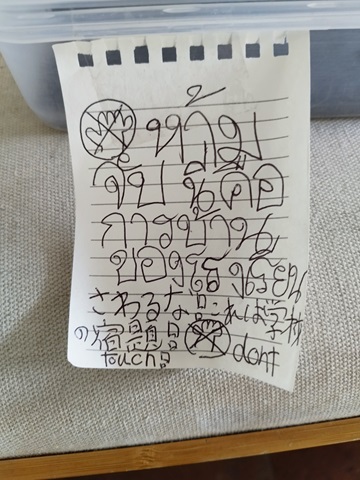 ห้าม
จับ นี่คือ
การบ้าน
ของโรงเรียน
さわるな これは学校
の宿題
dont
touch